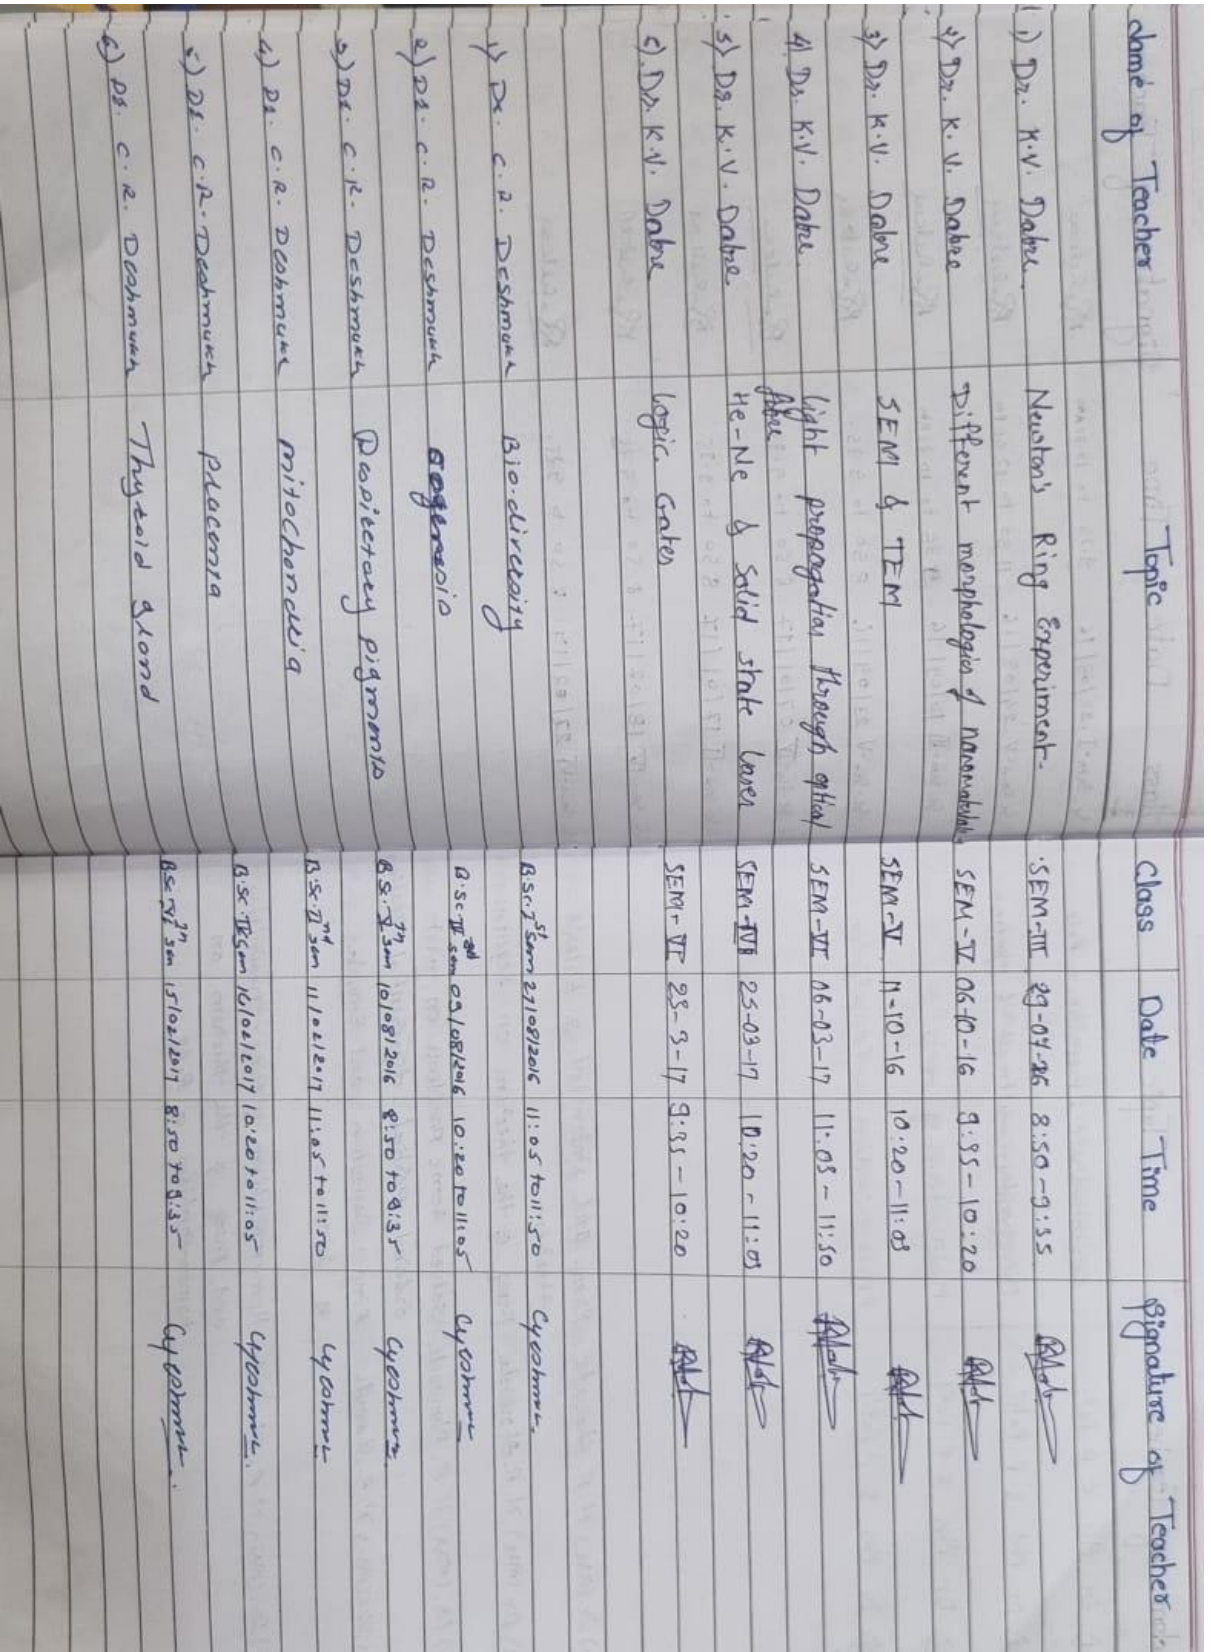 Name of Teacher Topic Class Date Time Signature of Teacher
1) Dr. K.V. Dabre. Newton's Ring Experiment- SEM-III 29-07-26 8:50-9:35
2) Dr. K.V. Dabre Different morphologies of nanomaterials SEM-V 06-10-16 9:35-10:20
3) Dr. K.V. Dabre SEM & TEM SEM-V 11-10-16 10:20-11:05
4) Dr. K.V. Dabre. Light propogation through optical SEM-VI 06-03-17 11:05-11:50
fibre
5) Dr. K.V. Dabre He-Ne & Solid state laser SEM-VI 25-03-17 10:20-11:05
6). Dr. K.V. Dabre Logic Gates SEM-VI 25-3-17 9:35-10:20
1) Dr. C.R. Deshmukh Biodiversity B.Sc. Ist sem 27/08/2016 11:05 to 11:50
2) Dr. C.R. Deshmukh oogenesis B.Sc. sem 09/08/2016 10:20 to 11:05
3) Dr. C.R. Deshmukh Respiratory pigments B.Sc. Vth sem 10/08/2016 8:50 to 9:35
4) Dr. C.R. Deshmukh mitochondria B.Sc. IInd sem 11/02/2017 11:05 to 11:50
5) Dr. C.R. Deshmukh placenta B.Sc. IV sem 16/02/2017 10:20 to 11:05
6) Dr. C.R. Deshmukh Thyroid gland B.Sc. VIth sem 15/02/2017 8:50 to 9:35